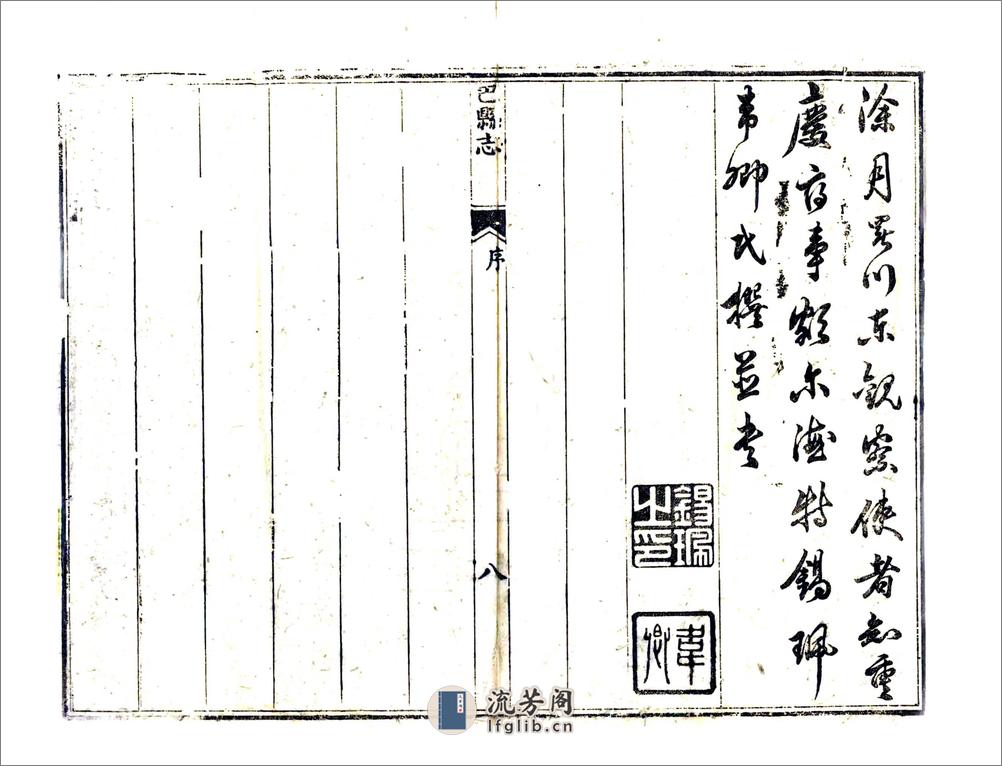 涂月署川东觀察使者知重
慶府事額尔德特錫珮
韋卿氏撰並书
錫珮之印
韋卿
巴縣志
序
八
流芳阁
lfglib.cn